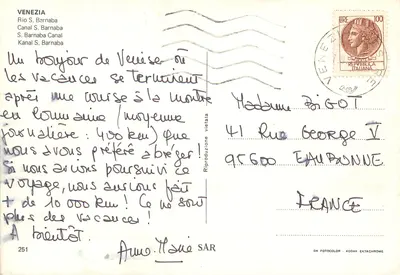 VENEZIA
Rio S. Barnaba
Canal S. Barnaba
S. Barnaba Canal
Kanal S. Barnaba
Un bonjour de Venise où
les vacances se terminent
après une course à la montre
en Roumanie (moyenne
journalière : 400 km) que
nous avons préféré abréger.
Si nous avions poursuivi ce
voyage, nous aurions fait
+ de 10 000 km ! Ce ne sont
plus des vacances !
A bientôt.
Anne-Marie
SAR
251
Riproduzione vietata
LIRE 100
REPUBBLICA
ITALIANA
VENEZ
Madame BIGOT
41 Rue GEORGE V
95600 EAUBONNE
FRANCE